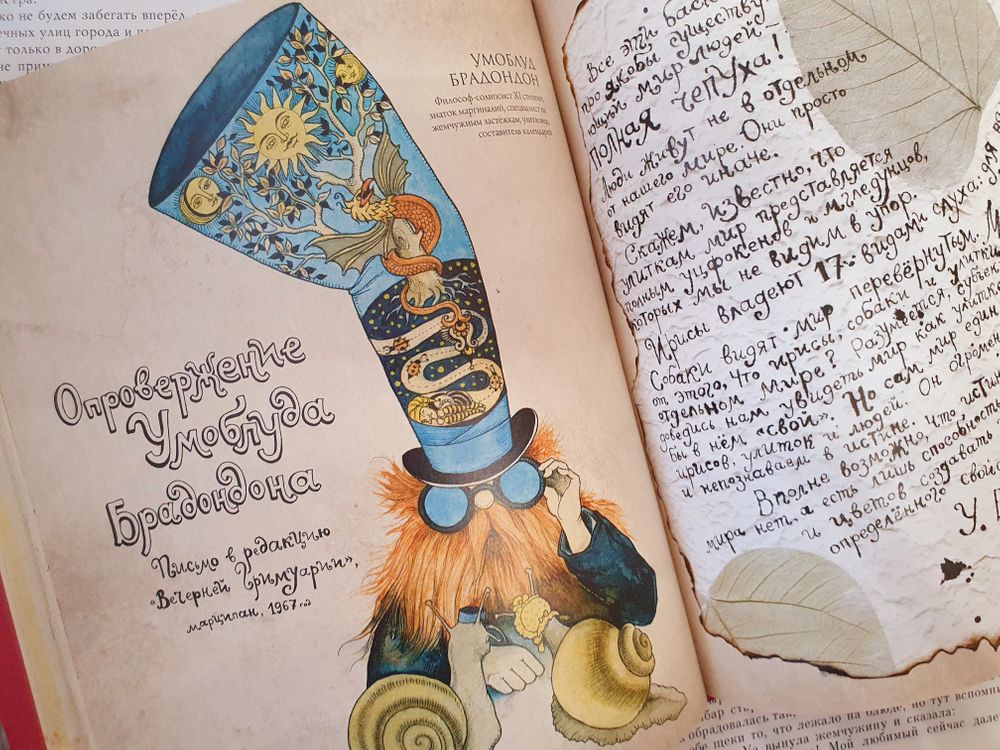 ко не будем забегать вперёд
ечных улиц города и
только в
не
УМОБЛУД
БРАДОНДОН
Философ-солипсист XI степени,
знаток маргиналий, специалист по
жемчужным застёжкам,
составитель календарей
Опровержение
Умоблуда
Брадондона
Письмо в редакцию
«Вечерней Гримуарии»,
марципан, 1967 год
Все эти
про якобы существу-
ющий мир людей —
ПОЛНАЯ ЧЕПУХа!
Люди живут не в отдельном
от нашего мире. Они просто
видят его иначе.
Скажем, известно, что
улиткам мир представляется
полным уцфокенов и мгледунцов,
которых мы не видим в упор.
Ирисы владеют 17-ю видами слуха.
Собаки видят мир перевёрнутым.
от этого, что ирисы, собаки и улитки
отдельном мире? Разумеется,
доведись нам увидеть мир как улитка
бы в нём «свой». Но сам мир един
ирисов, улиток и людей. Он
и непознаваем в истине.
Вполне возможно, что
мира нет, а есть лишь способность
и цветов создавать
определённого
У.
обрадовалась так, что лежало на блюде, но тут вспомни
ебе щеки то, что
вынула жемчужину и сказала:
Мой любимый сейчас